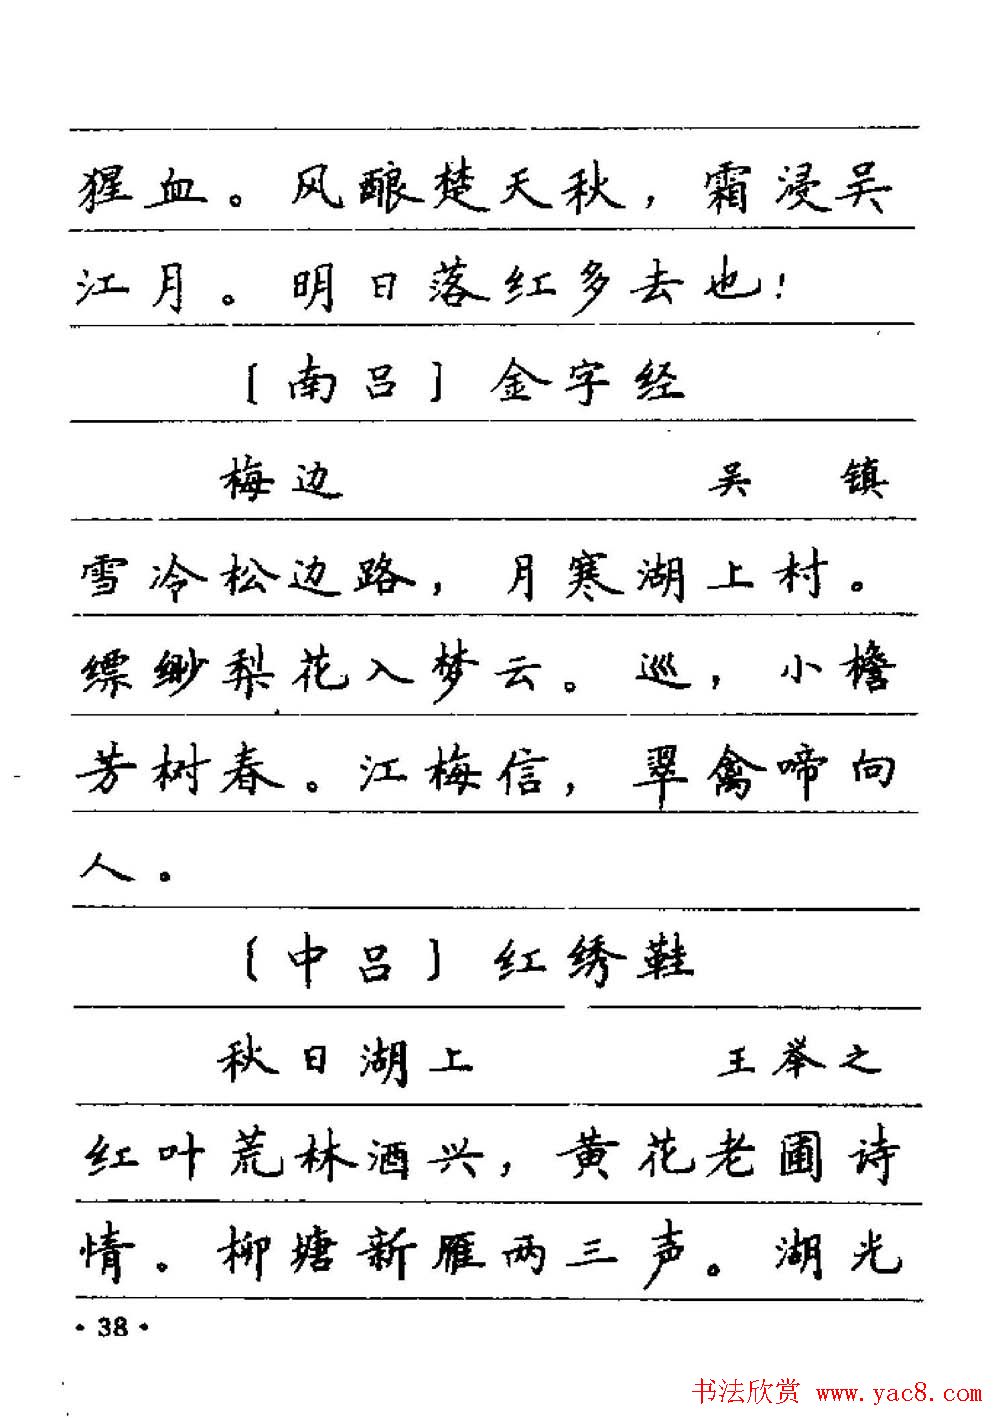 猩血。风酿楚天秋，霜浸吴
江月。明日落红多去也！
〔南吕〕金字经
梅边 吴 镇
雪冷松边路，月寒湖上村。
缥缈梨花入梦云。巡，小檐
芳树春。江梅信，翠禽啼向
人。
〔中吕〕红绣鞋
秋日湖上 王举之
红叶荒林酒兴，黄花老圃诗
情。柳塘新雁两三声。湖光
·38·
书法欣赏 www.yac8.com